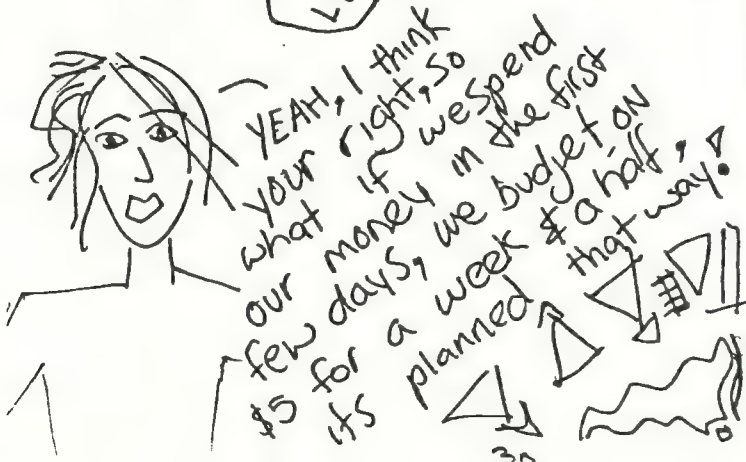 YEAH, I think
your right, so
what if we spend
our money in the first
few days, we budget on
$5 for a week & a half,
its planned that way!